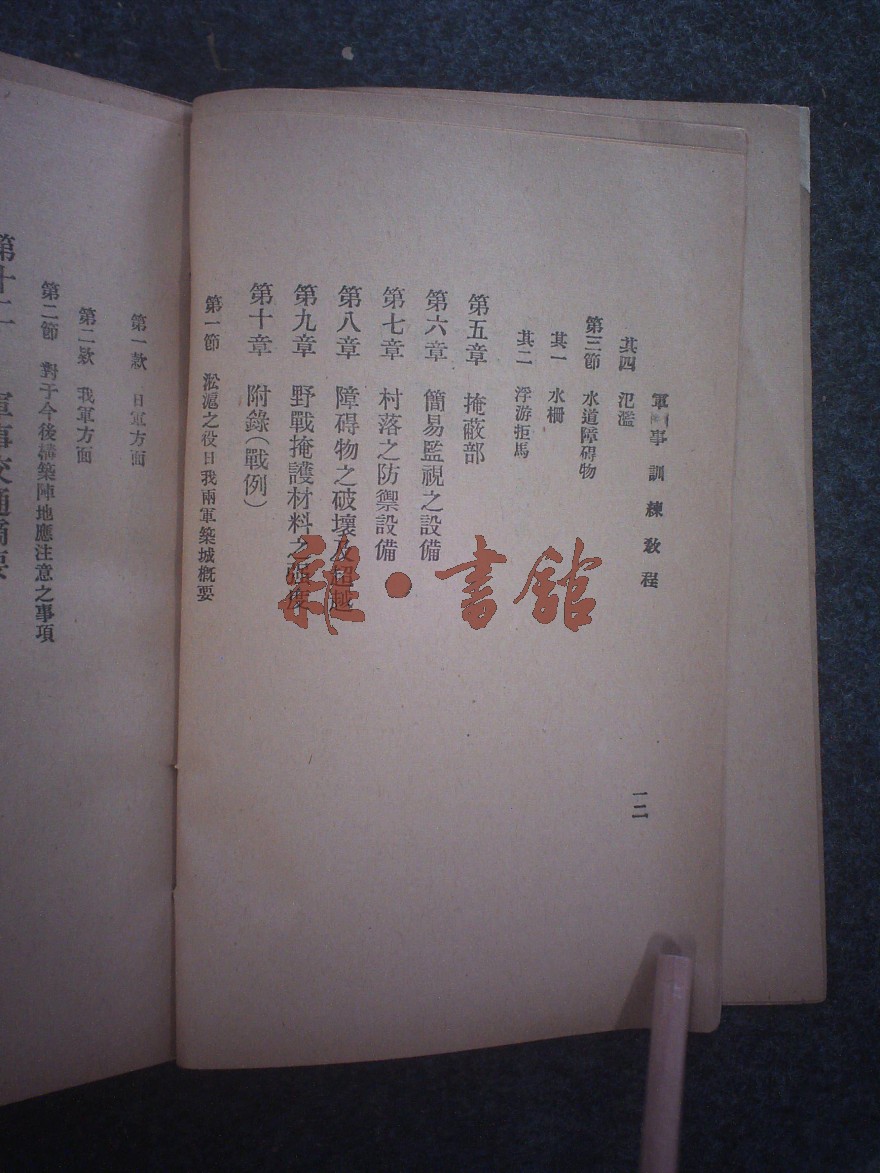 軍事訓練教程
其四 氾濫
第三節 水道障碍物
其一 水柵
其二 浮游拒馬
第五章 掩蔽部
第六章 簡易監視之設備
第七章 村落之防禦設備
第八章 障碍物之破壞及超越
第九章 野戰掩護材料之强度
第十章 附錄(戰例)
第一節 淞滬之役日我兩軍築城概要
一二
第一款 日軍方面
第二欵 我軍方面
第二節 對于今後構築陣地應注意之事項
軍事交通摘要
雜·書館